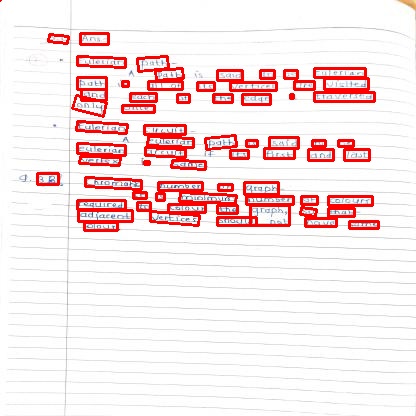 Ans:
• Eulerian path-
A path is said to be Eulerian
path if all of its vertices are visited
and each of the edge traversed
only once.
• Eulerian circuit-
A Eulerian path is said to be
Eulerian circuit if its first and last
vertex is same
Q. 3B. Chromatic number of graph
is a minimum number of colours
required to colour the graph, so that
adjacent vertices should not have same
colour